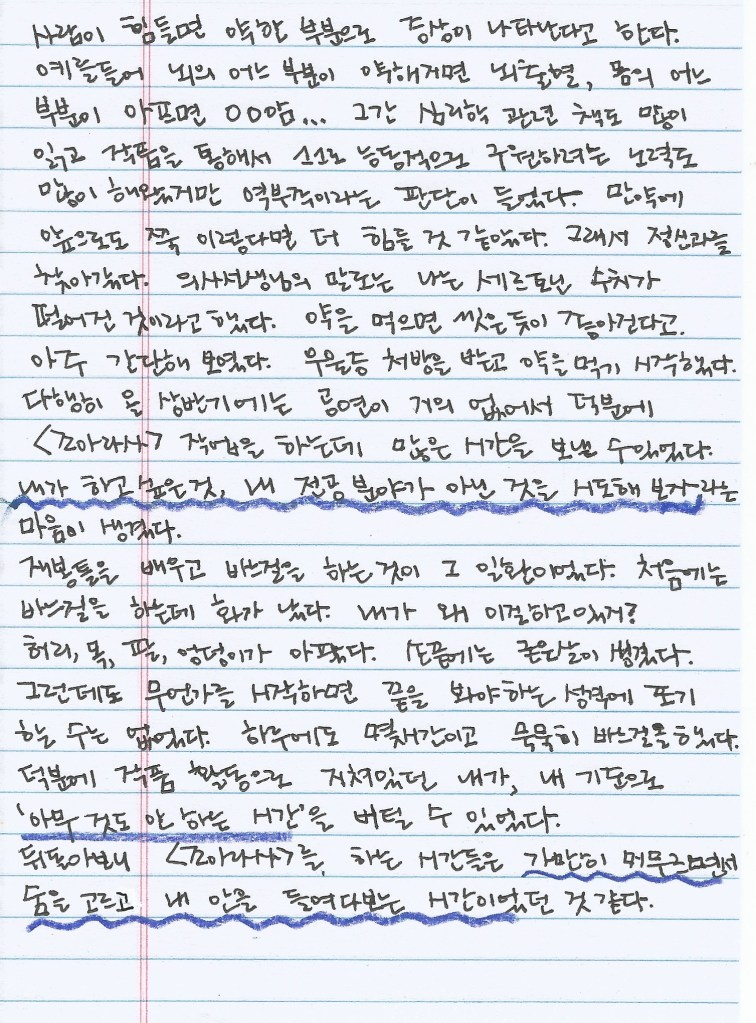 사람이 힘들면 약한 부분으로 증상이 나타난다고 한다.
예를들어 뇌의 어느 부분이 약해지면 뇌출혈, 몸의 어느
부분이 아프면 OO암... 그간 심리학 관련 책도 많이
읽고 작품을 통해서 스스로 능동적으로 구원하려는 노력도
많이 해왔지만 역부족이라는 판단이 들었다. 만약에
앞으로도 쭉 이렇다면 더 힘들 것 같았다. 그래서 정신과를
찾아갔다. 의사선생님의 말로는 나는 세르토닌 수치가
떨어진 것이라고 했다. 약을 먹으면 씻은듯이 좋아진다고.
아주 간단해 보였다. 우울증 처방을 받고 약을 먹기 시작했다.
다행히 올 상반기에는 공연이 거의 없어서 덕분에
<꼬아라사> 작업을 하는데 많은 시간을 보낼 수 있었다.
내가 하고싶은것, 내 전공 분야가 아닌 것을 시도해 보자라는
마음이 생겼다.
재봉틀을 배우고 바느질을 하는 것이 그 일환이었다. 처음에는
바느질을 하는데 화가 났다. 내가 왜 이걸하고있지?
허리, 목, 팔, 엉덩이가 아팠다. 손끝에는 굳은살이 생겼다.
그런데도 무언가를 시작하면 끝을 봐야하는 성격에 포기
할 수는 없었다. 하루에도 몇시간이고 묵묵히 바느질을 했다.
덕분에 작품 활동으로 지쳐있던 내가, 내 기준으로
'아무 것도 안 하는 시간'을 버틸 수 있었다.
뒤돌아보니 <꼬아라사>를 하는 시간들은 가만히 머무르면서
숨을 고르고 내 안을 들여다보는 시간이었던 것 같다.